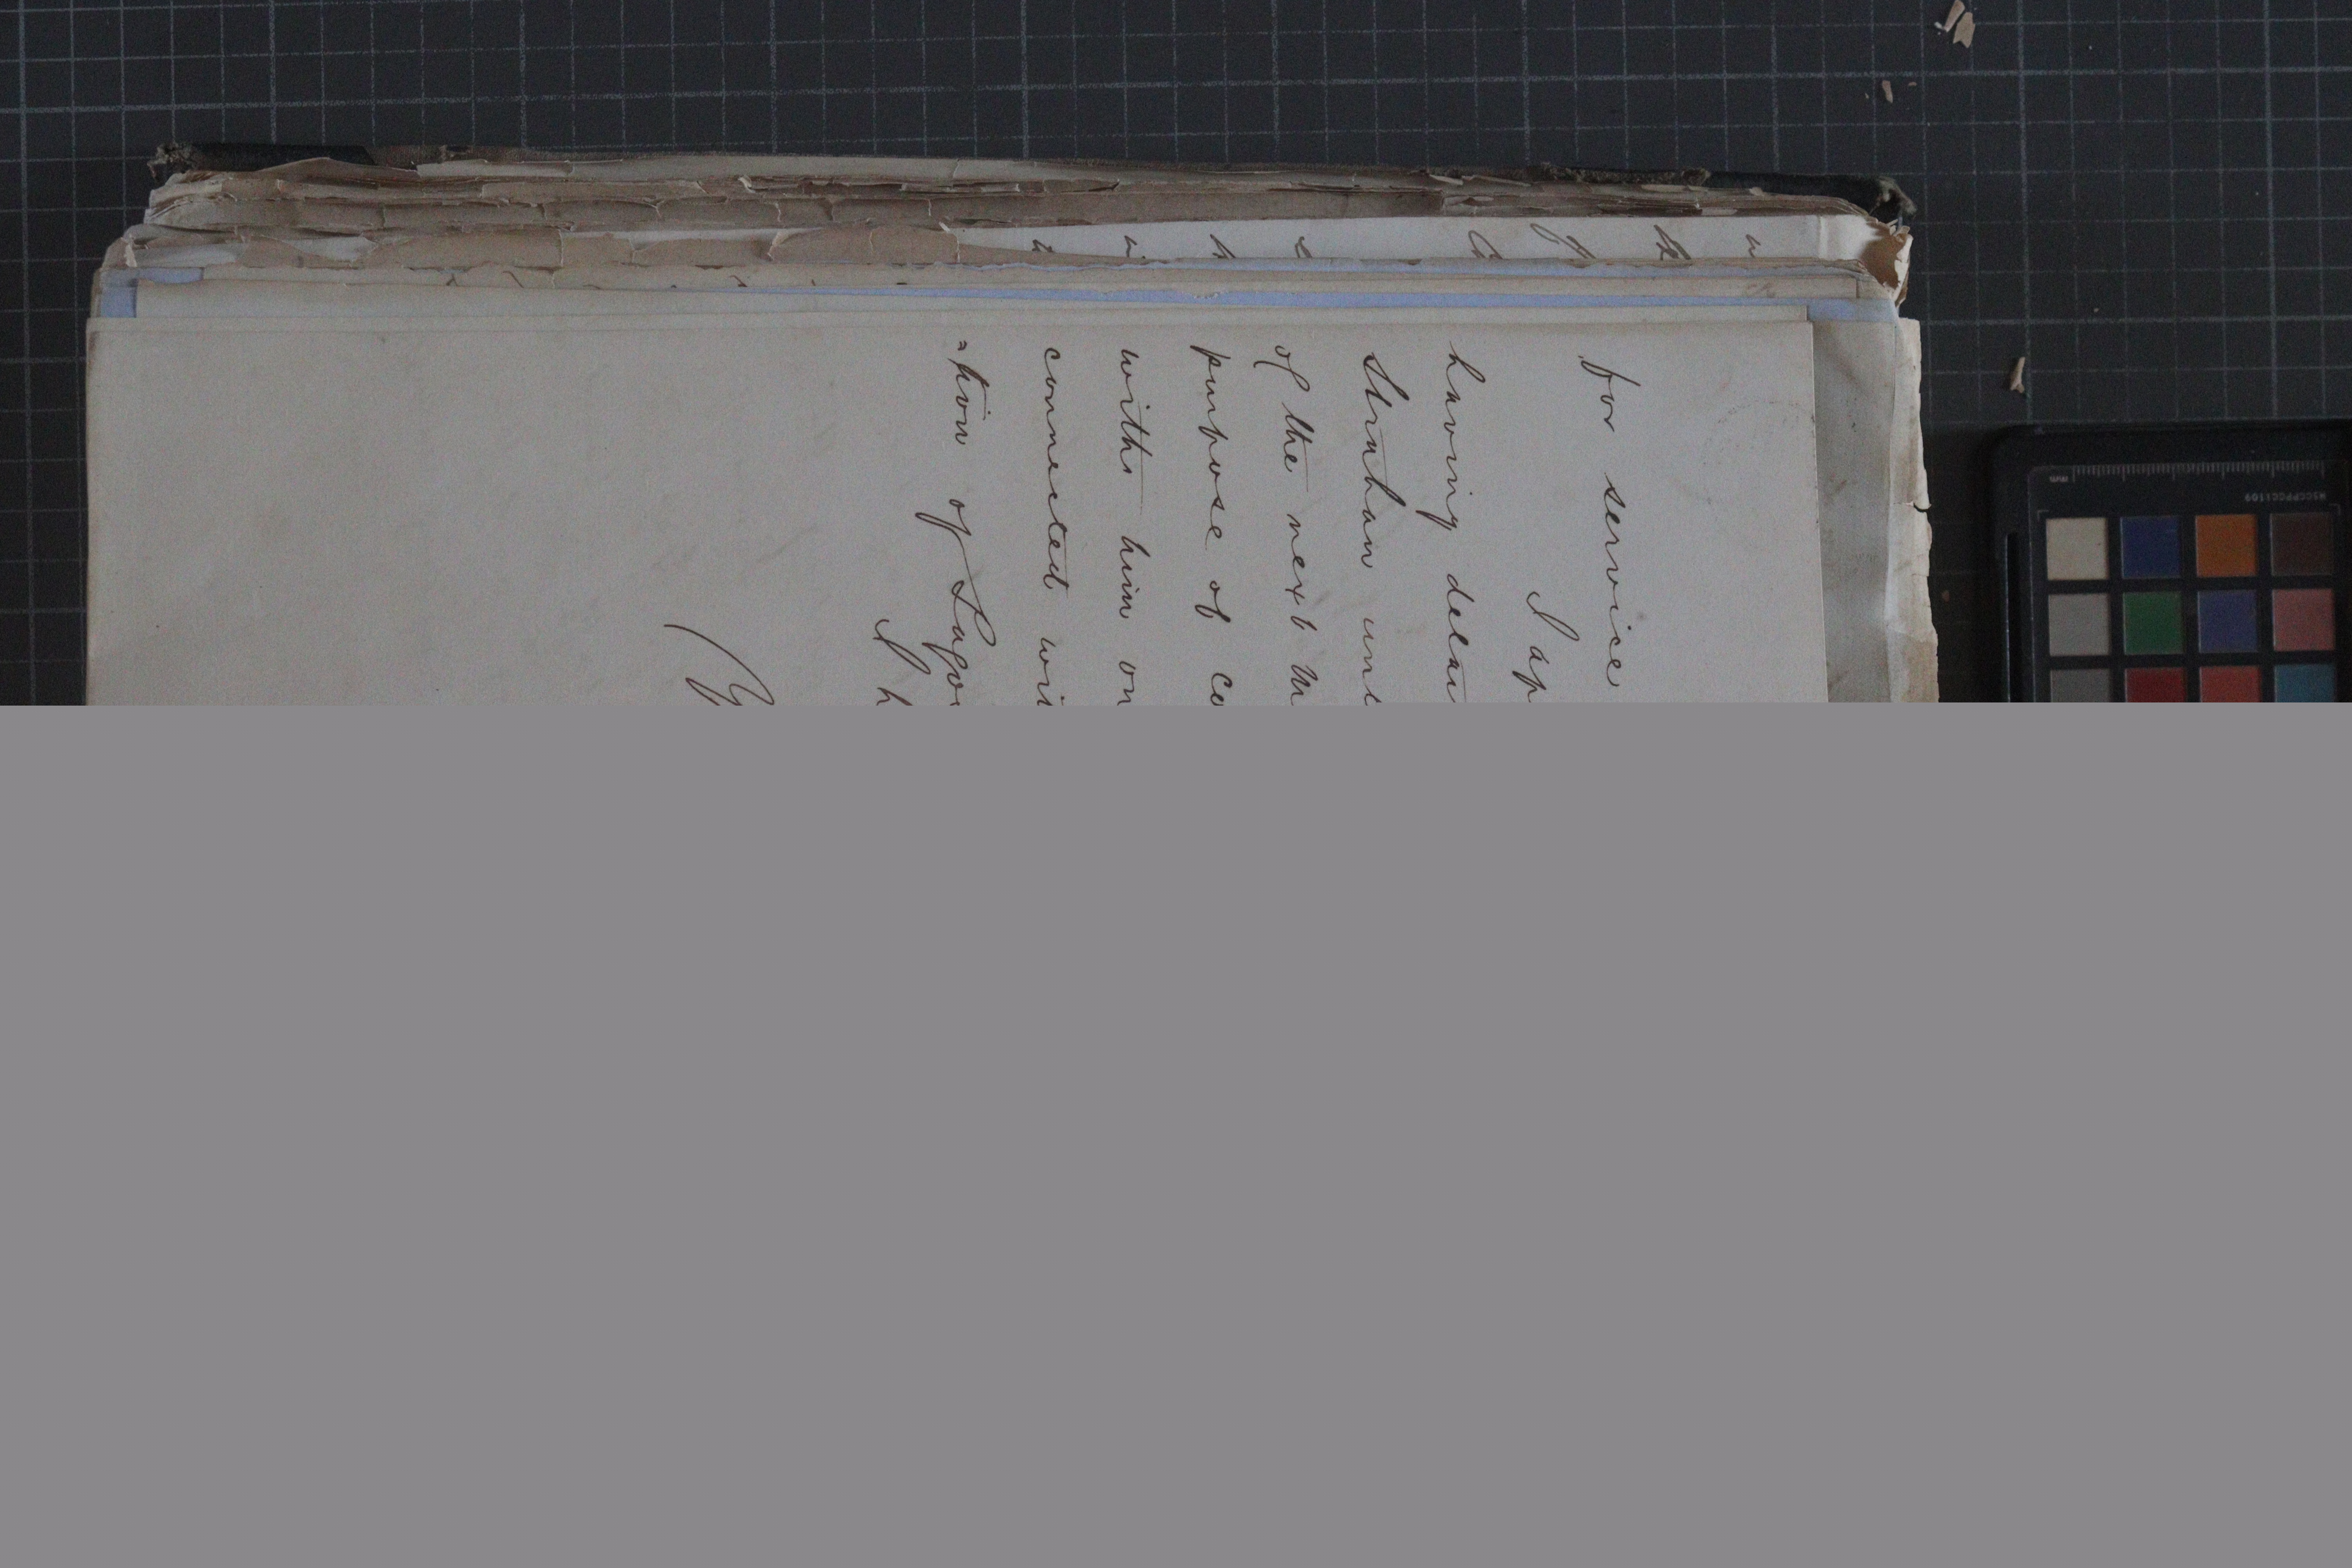 for service
I ap
having detai
Strahan unt
of the next M
purpose of co
with him on
connected wit
=tion of Lagos
I h